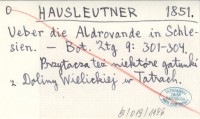 O HAUSLEUTNER 1851.
Ueber die Aldrovande in Schle-
sien. — Bot. Ztg 9: 301-304.
Przytacza też niektóre gatunki
z Doliny Wielickiej w Tatrach.